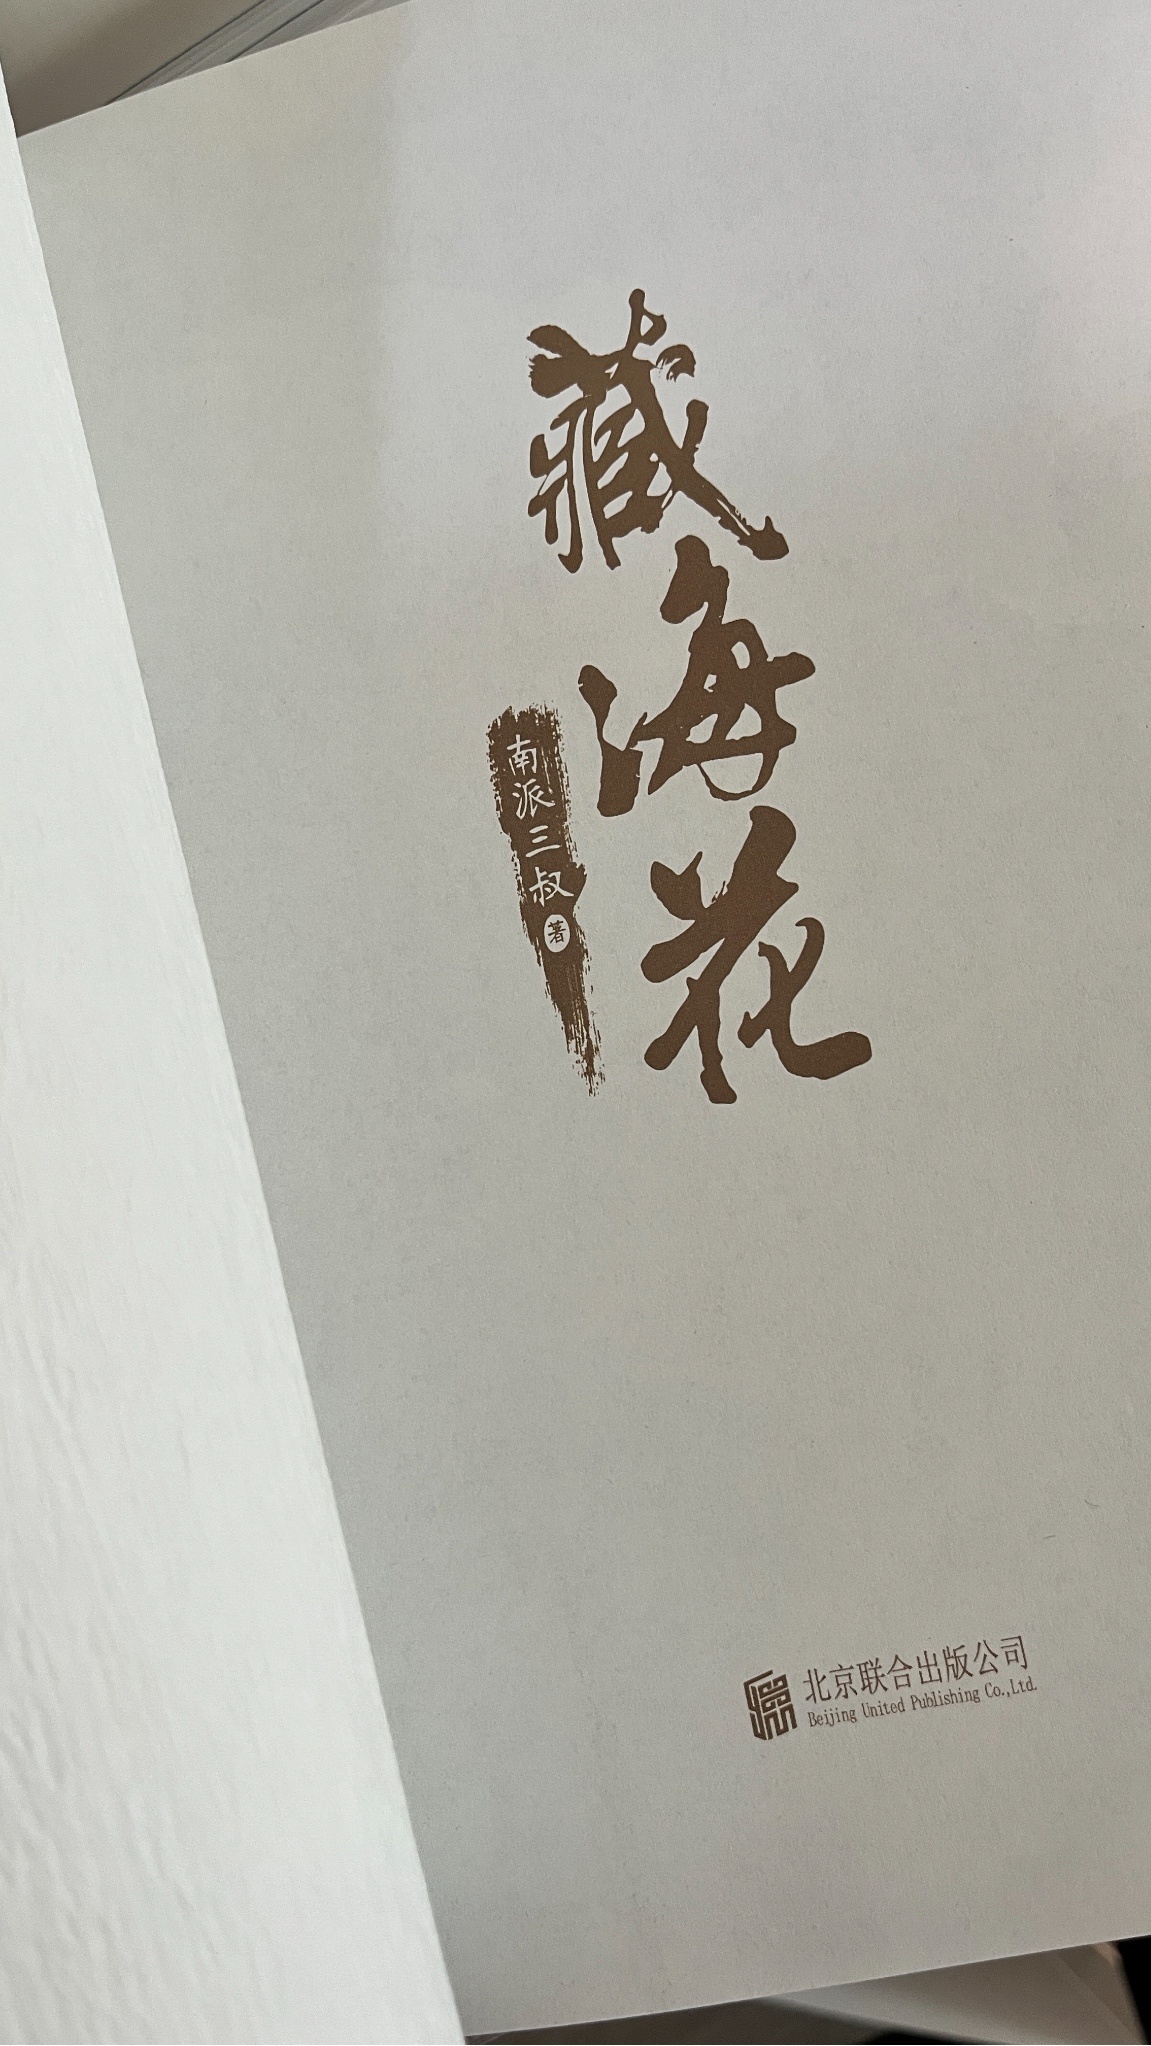 藏海花
南派三叔 著
北京联合出版公司
Beijing United Publishing Co.,Ltd.